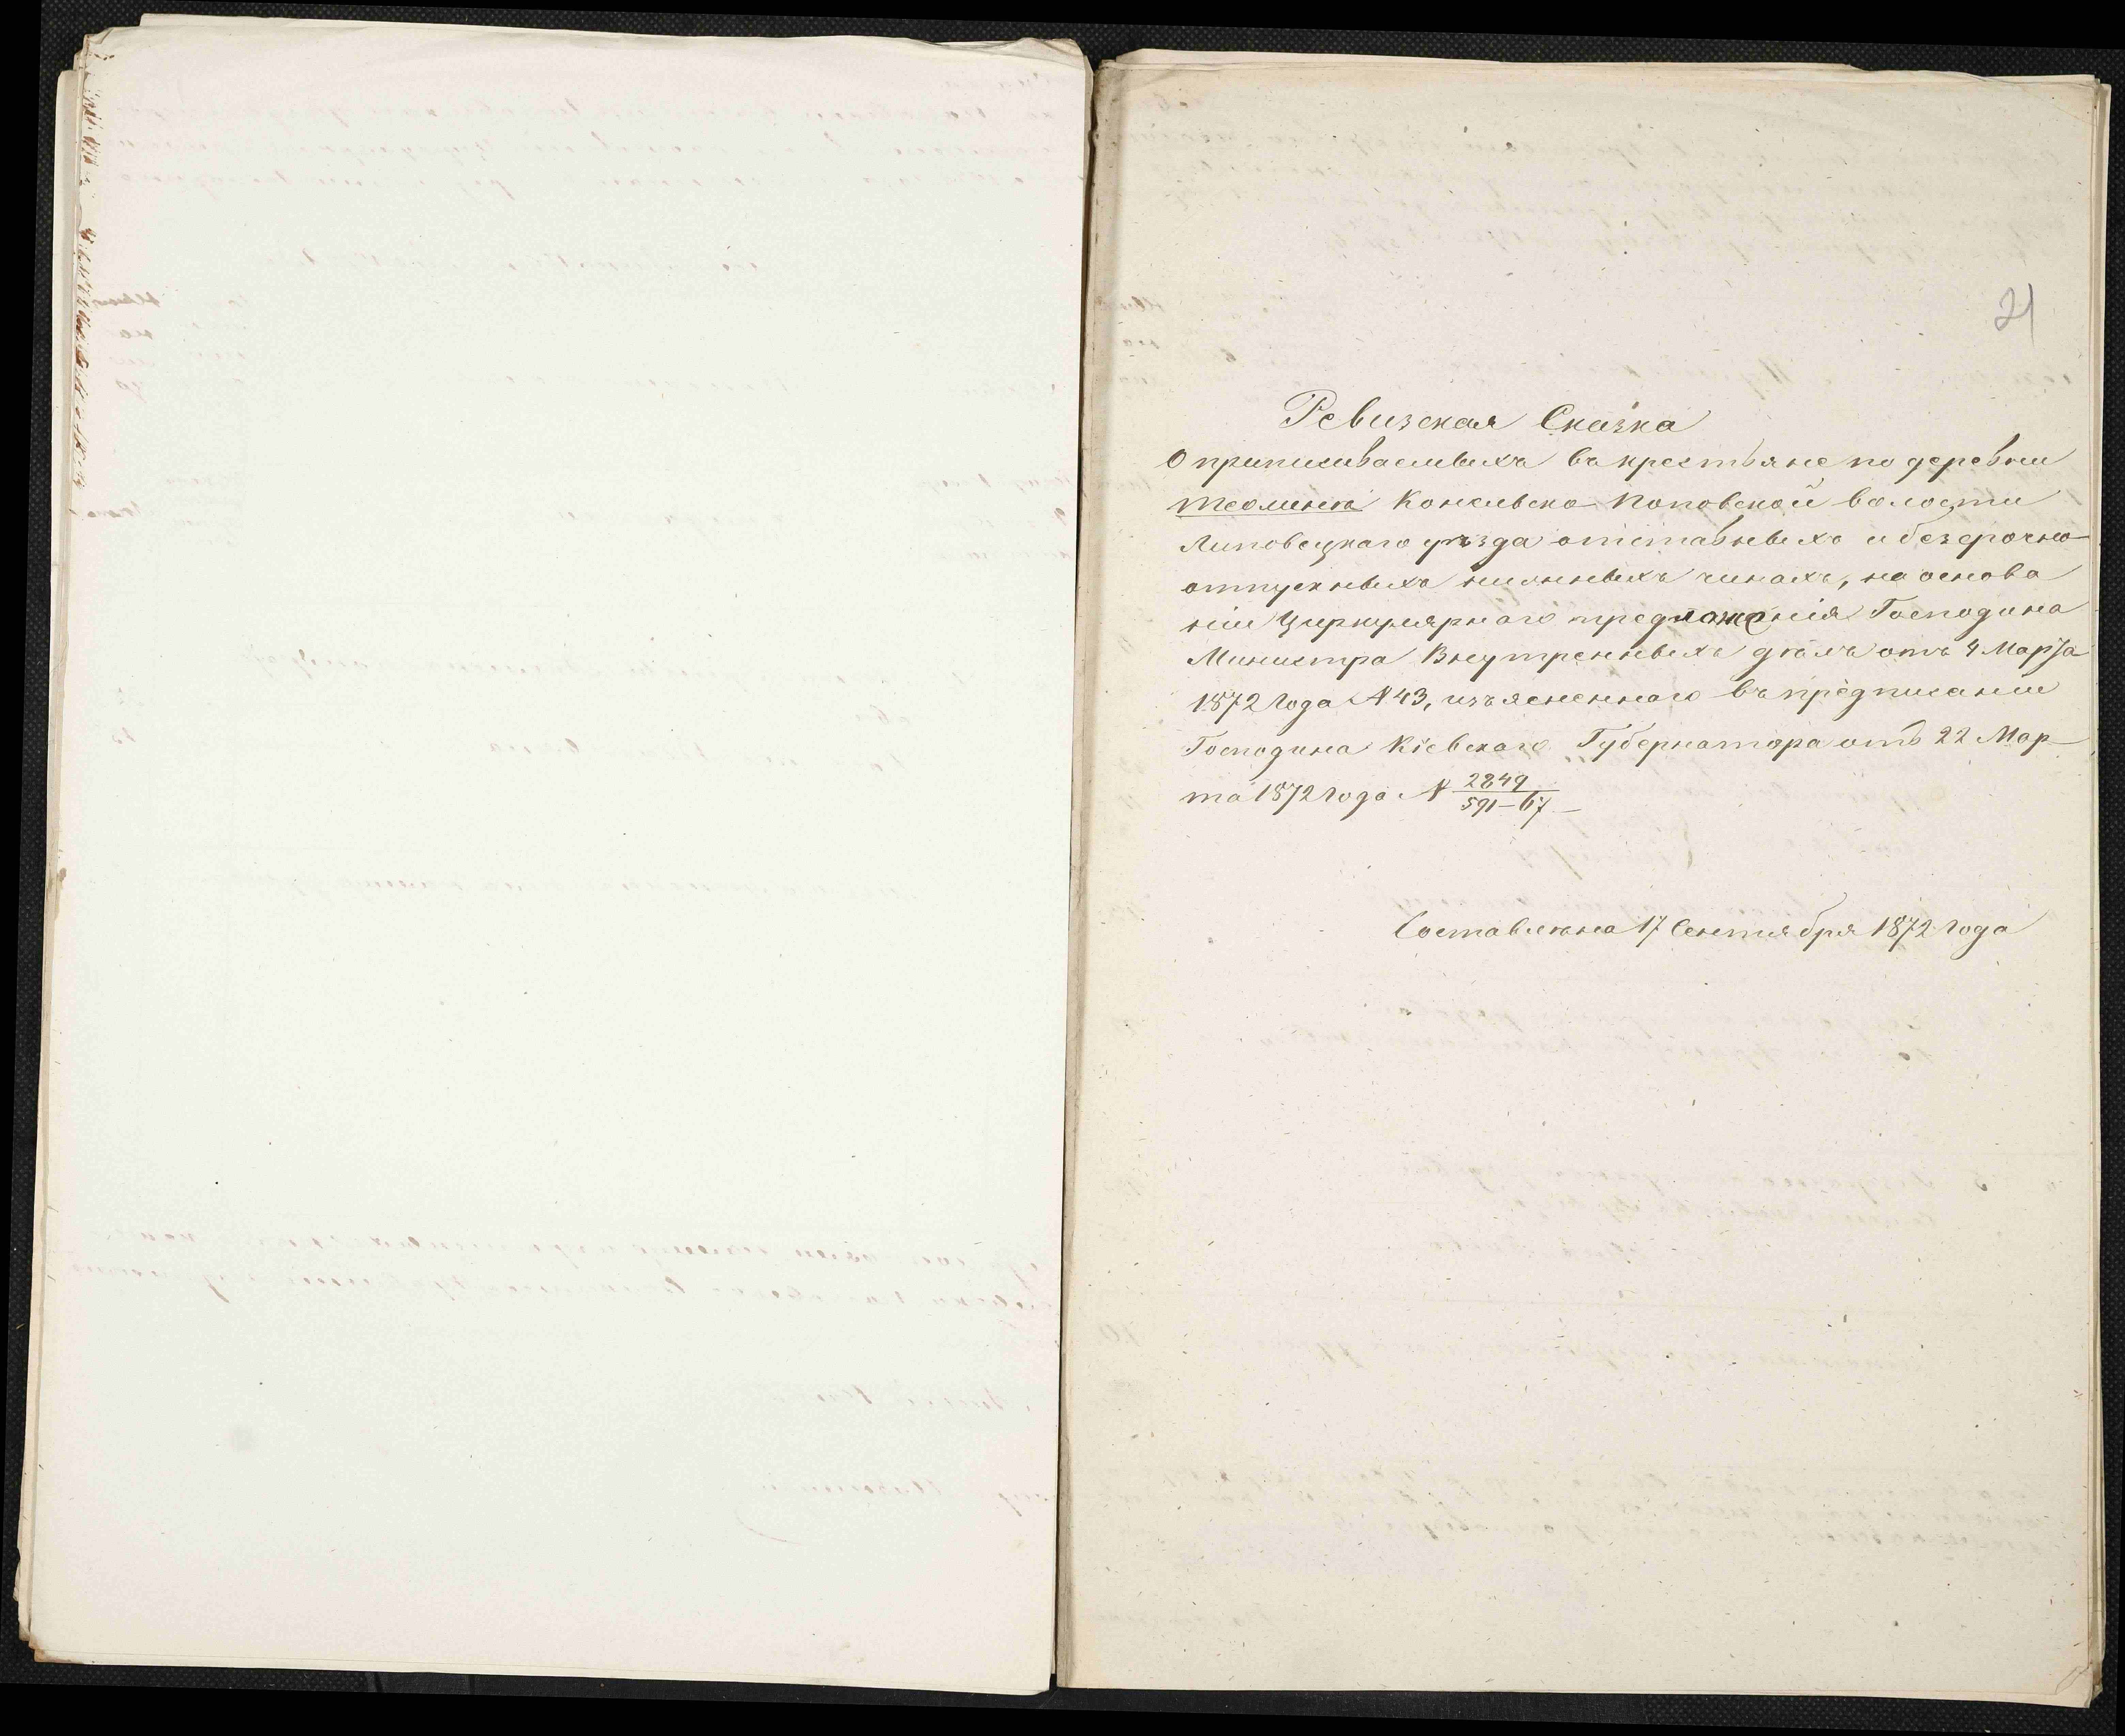 21
Ревизская Сказка
О приписываемыхъ въ крестьяне по деревни
Теолинка Конельско-Поповской волости
Липовецкаго уѣзда отставныхъ и безсрочно
отпускныхъ нижныхъ чинахъ, на основа
ніи Циркулярнаго предложенія Господина
Министра Внутренныхъ дѣлъ отъ 4 Марта
1872 года № 43, изъясненнаго въ предписаніи
Господина Кіевскаго Губернатора отъ 22 Мар-
та 1872 года № 2849/591-67
Составлена 17 Сентября 1872 года